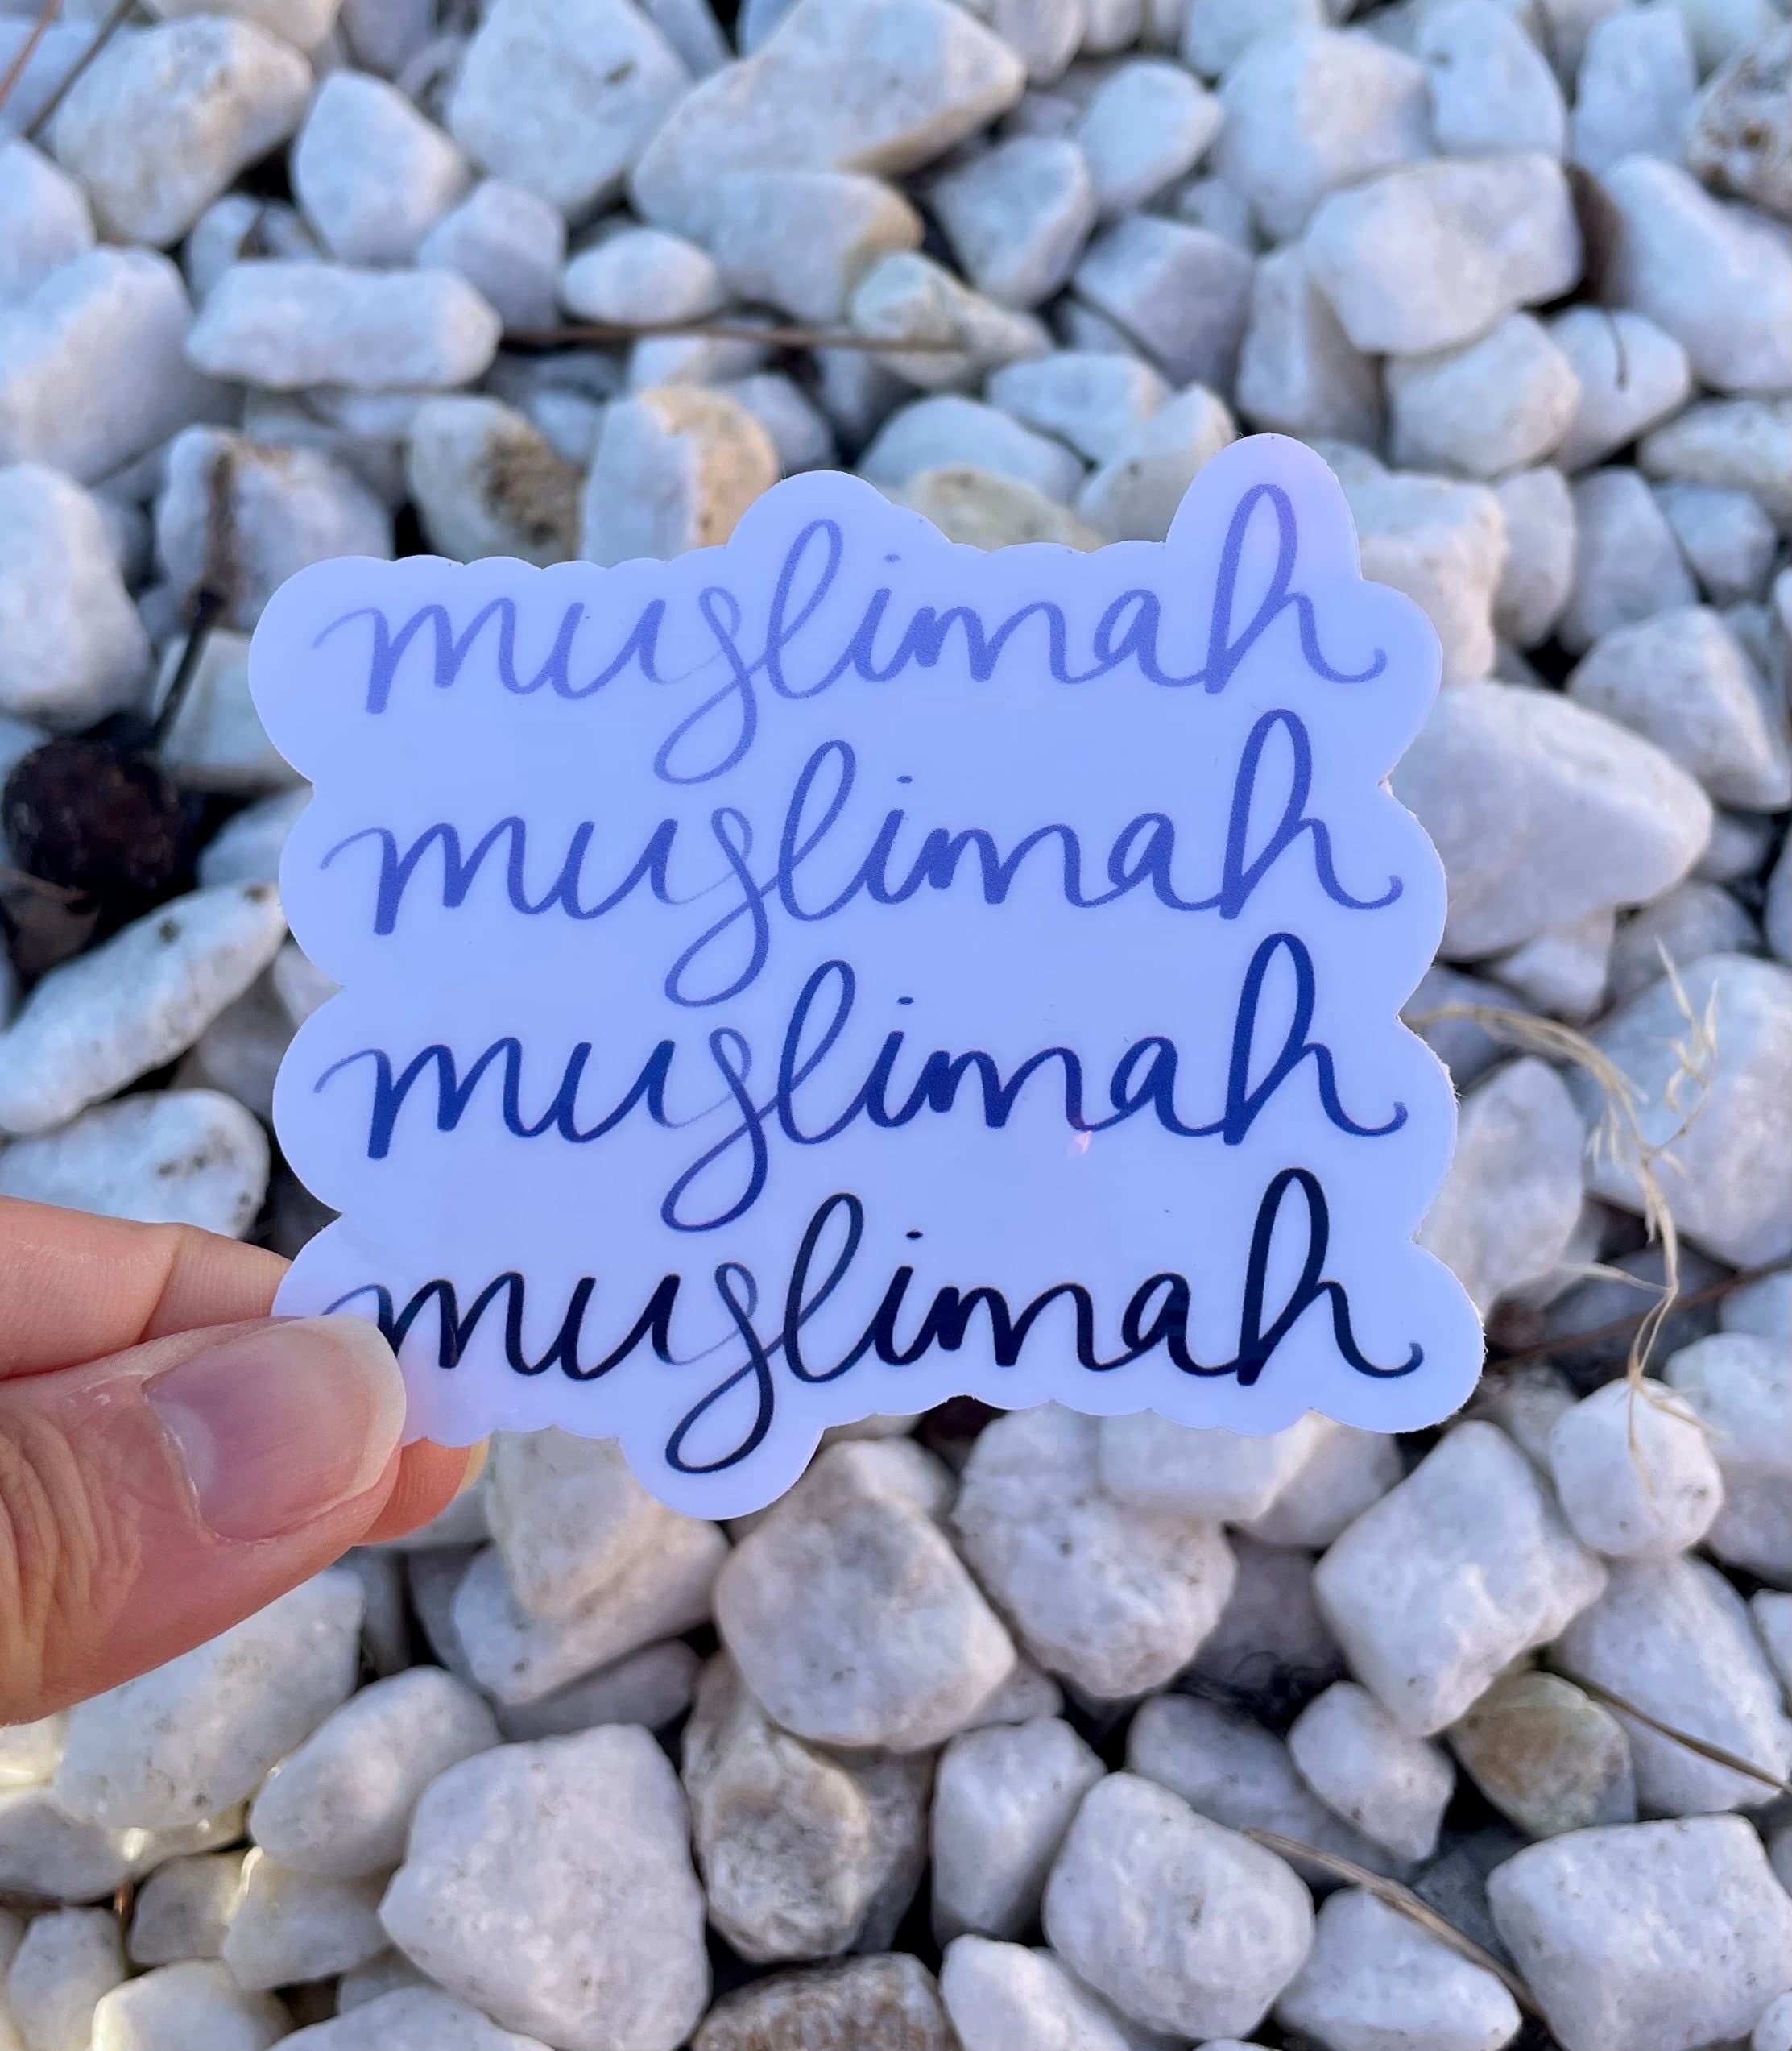 muslimah
muslimah
muslimah
muslimah